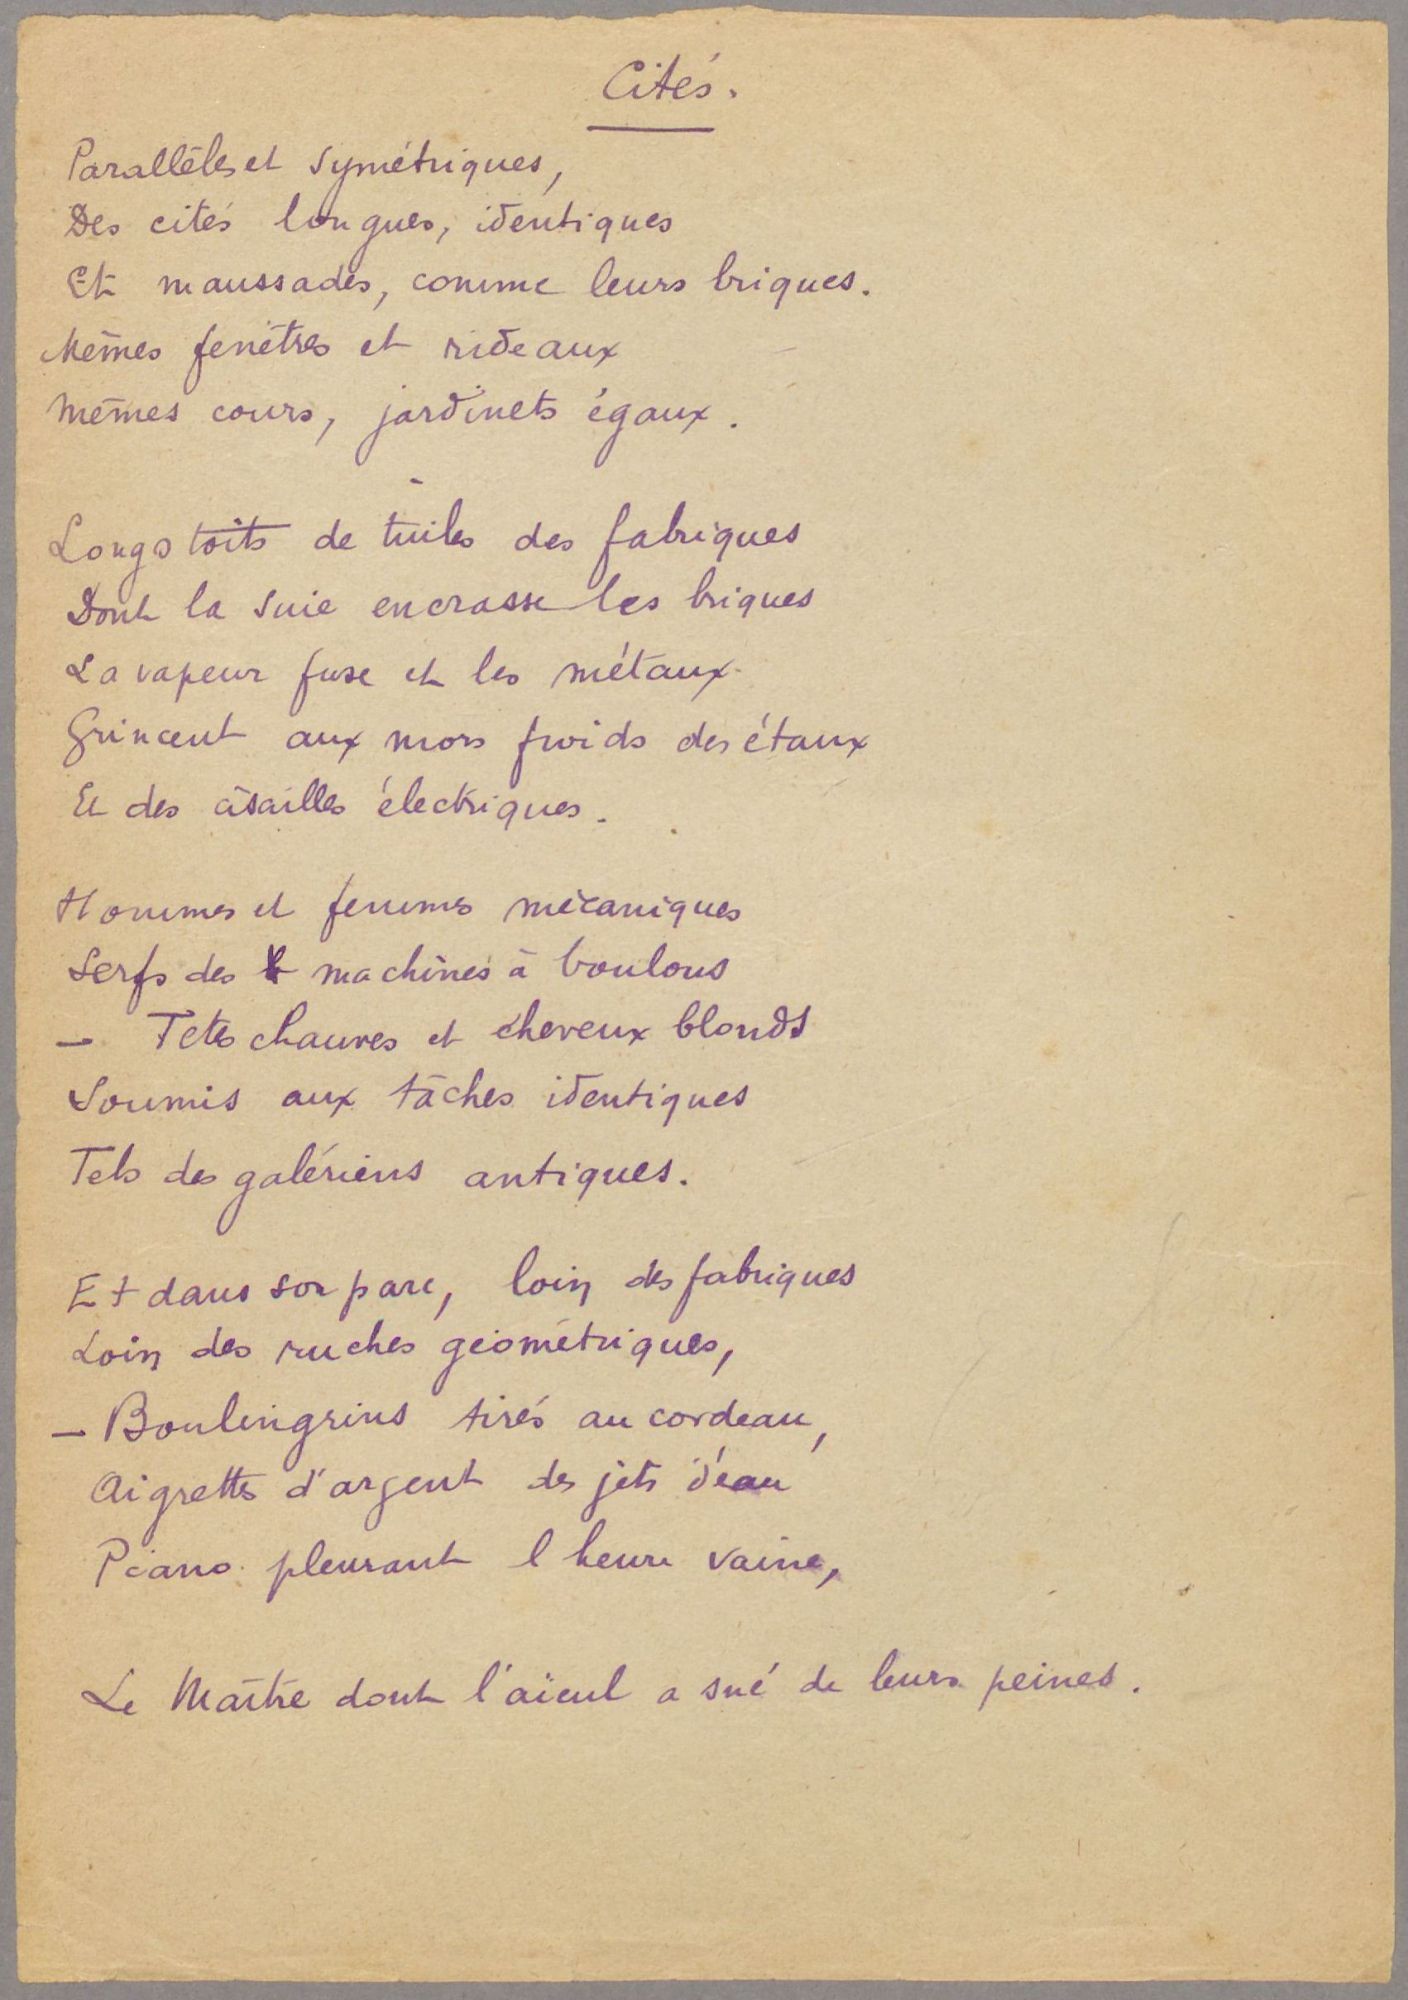 Cités.
Parallèles et symétriques,
Des cités longues, identiques
Et maussades, comme leurs briques.
Mêmes fenêtres et rideaux
Mêmes cours, jardinets égaux.
Longs toits de tuiles des fabriques
Dont la suie encrasse les briques
La vapeur fuse et les métaux
Grincent aux mors froids des étaux
Et des cisailles électriques.
Hommes et femmes mécaniques
Serfs des machines à boulons
— Têtes chauves et cheveux blonds
Soumis aux tâches identiques
Tels des galériens antiques.
Et dans son parc, loin des fabriques
Loin des ruches géométriques,
— Boulingrins tirés au cordeau,
Aigrettes d'argent des jets d'eau
Piano pleurant l'heure vaine,
Le Maître dont l'aïeul a sué de leurs peines.